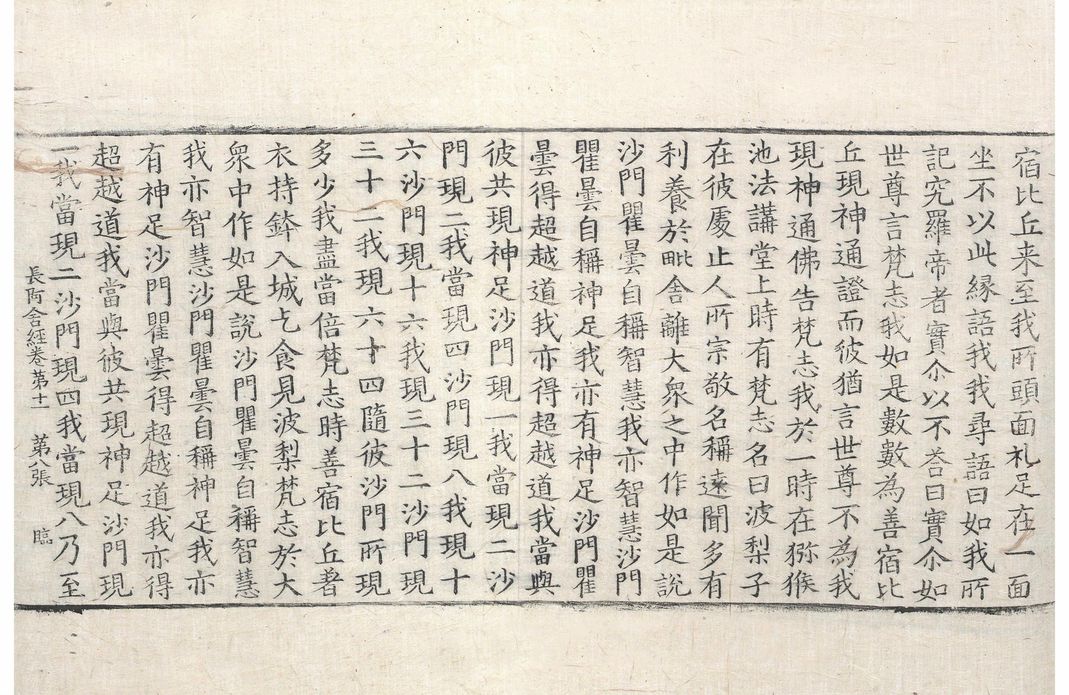 宿比丘来至我所頭面礼足在一面
坐不以此縁語我我尋語曰如我所
記究羅帝者實尒以不荅曰實尒如
世尊言梵志我如是數數為善宿比
丘現神通證而彼猶言世尊不為我
現神通佛告梵志我於一時在猕猴
池法講堂上時有梵志名曰波梨子
在彼處止人所宗敬名稱逺聞多有
利養於毗舍離大衆之中作如是說
沙門瞿曇自稱智慧我亦智慧沙門
瞿曇自稱神足我亦有神足沙門瞿
曇得超越道我亦得超越道我當與
彼共現神足沙門現一我當現二沙
門現二我當現四沙門現八我現十
六沙門現十六我現三十二沙門現
三十二我現六十四隨彼沙門所現
多少我盡當倍梵志時善宿比丘著
衣持鉢入城乞食見波梨梵志於大
衆中作如是說沙門瞿曇自稱智慧
我亦智慧沙門瞿曇自稱神足我亦
有神足沙門瞿曇得超越道我亦得
超越道我當與彼共現神足沙門現
一我當現二沙門現四我當現八乃至
長阿含經卷第十一 第八張 臨